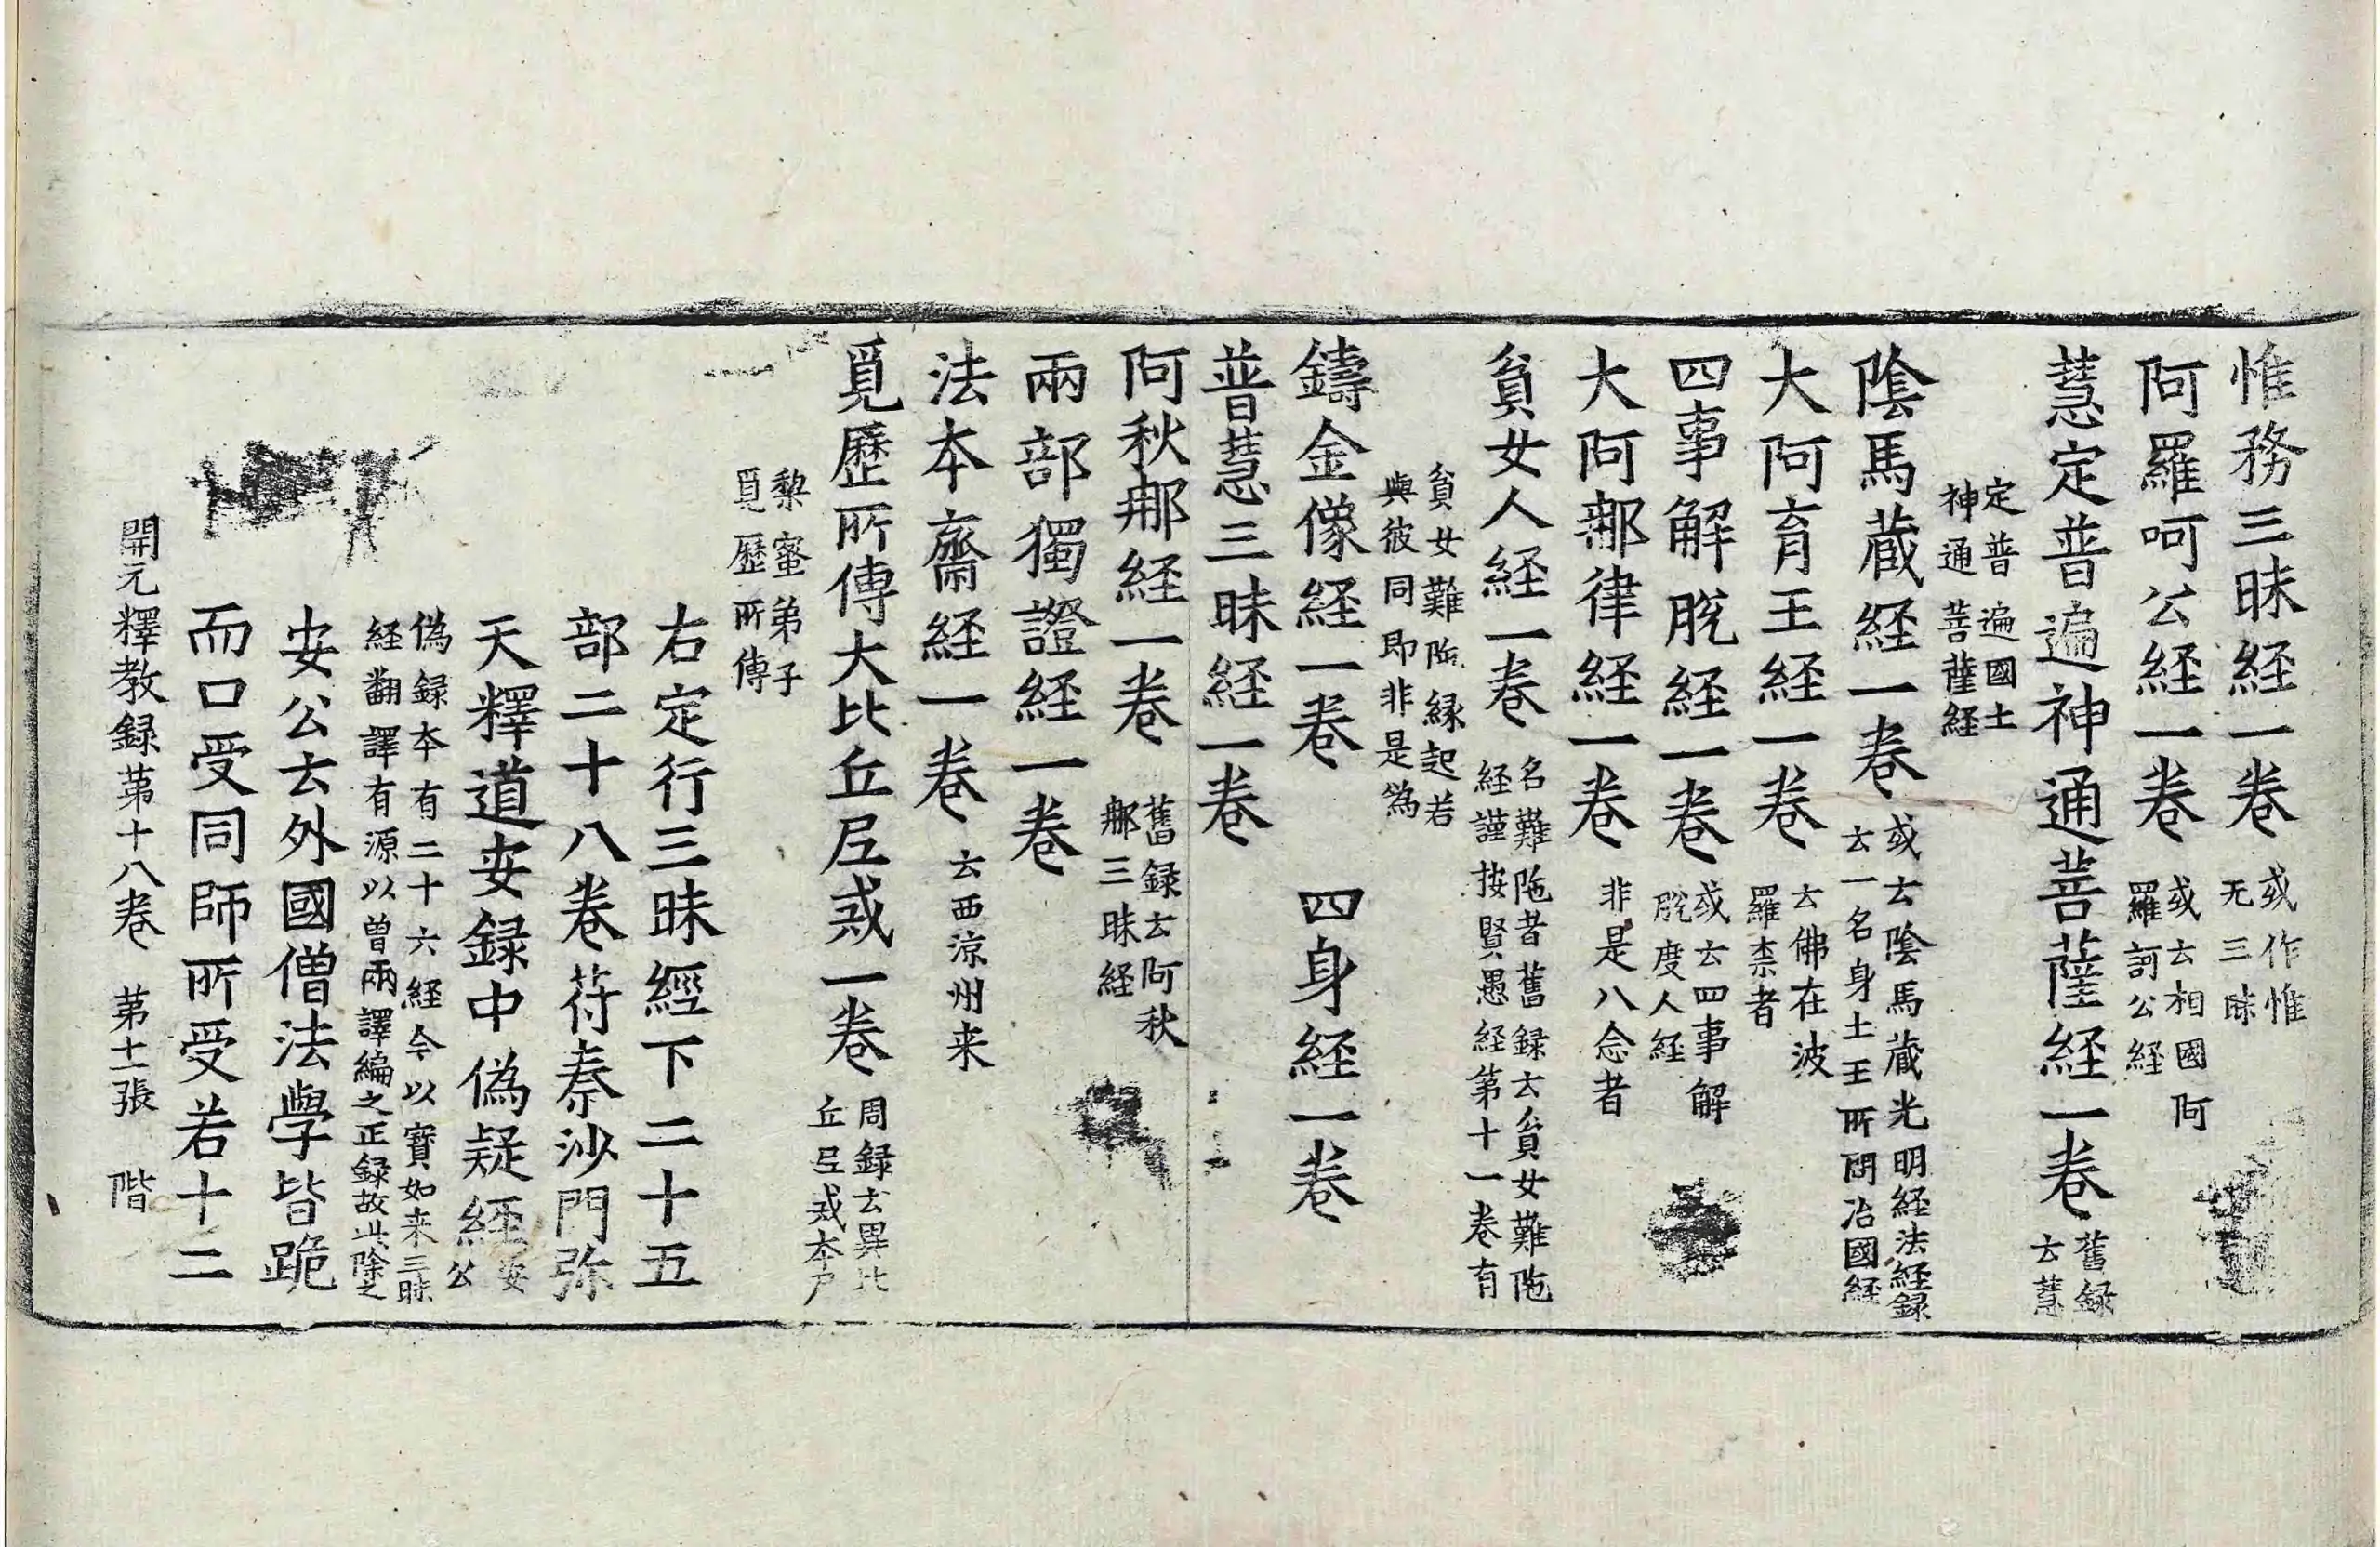 惟務三昧経一卷 或作惟无三昧
阿羅呵公経一卷 或云相國阿羅訶公経
慧定普遍神通菩薩経一卷 舊録云慧
定普遍國土神通菩薩経
陰馬蔵経一卷 或云陰馬蔵光明経法経録云一名身土王所問治國経
大阿育王経一卷 云佛在波羅柰者
四事解脫経一卷 或云四事解脫度人経
大阿那律経一卷 非是八念者
貧女人経一卷 名難陁者舊録云貧女難陁経謹按賢愚経第十一卷有
貧女難陁縁起若與彼同即非是偽
鑄金像経一卷 四身経一卷
普慧三昧経一卷
阿秋那経一卷 舊録云阿秋那三昧経
兩部獨證経一卷
法本齋経一卷 云西涼州来
覓歷所傳大比丘尼戒一卷 周録云異比丘尼戒本尸
黎蜜弟子覓歷所傳
右定行三昧經下二十五
部二十八卷苻秦沙門弥
天釋道安録中偽疑經 安公
偽録本有二十六経今以寶如来三昧経翻譯有源以曾兩譯編之正録故此除之
安公云外國僧法學皆跪
而口受同師所受若十二
開元釋教録苐十八卷 第十一張 階